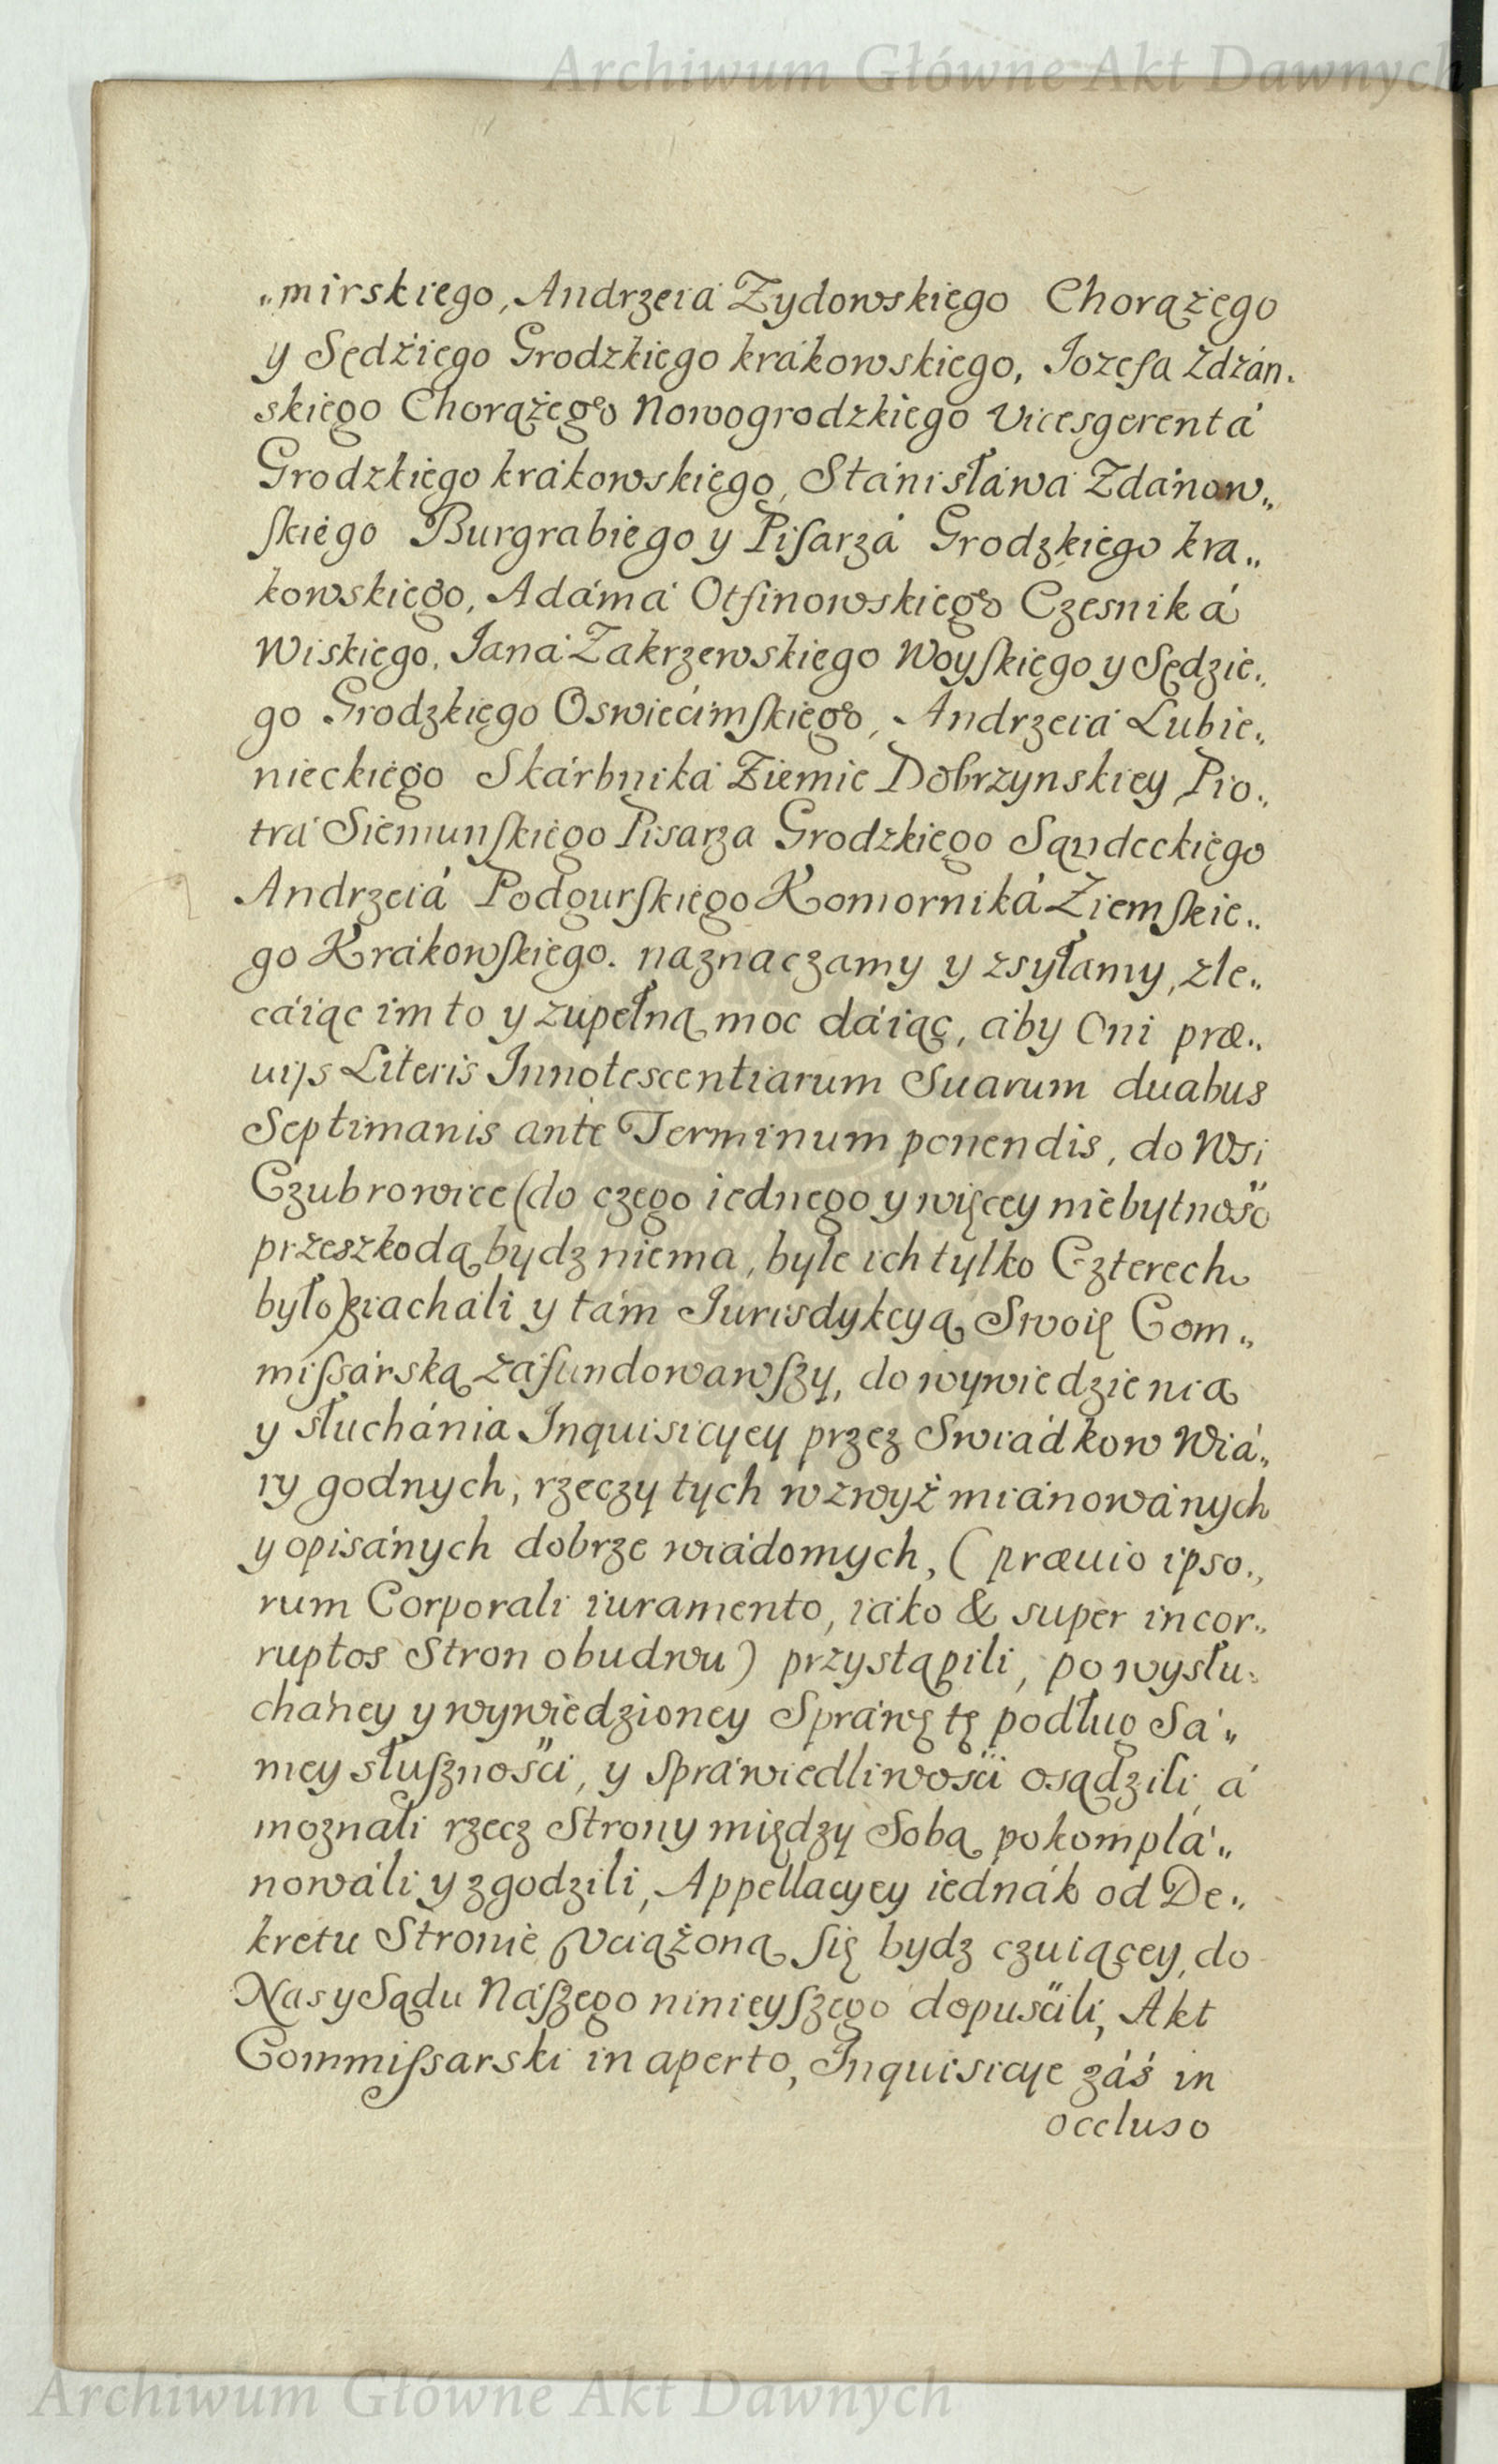 Archiwum Główne Akt Dawnych
„mirskiego, Andrzeiá Zydowskiego Chorążego
y Sędźiego Grodzkiego krákowskiego, Iozefa Zdzán„
skiego Chorążego Nowogrodzkiego Vicesgerentá
Grodzkiego krákowskiego, Stánisłáwá Zdánow„
ſkiego Burgrabiego y Piſarzá Grodzkiego kra„
kowskiego, Adámá Otſinowskiego Czesniká
Wiskiego, Janá Zakrzewskiego Woyſkiego y Sędzie„
go Grodzkiego Oswiećimſkiego, Andrzeiá Lubie„
nieckiego Skárbniká Ziemie Dobrzynskiey Pio„
trá Siemunſkiego Pisarza Grodzkiego Sąndeckiego
Andrzeiá Podgurſkiego Komorniká Ziemſkie„
go Krákowſkiego. náznaczamy y zsyłamy, zle„
cáiąc im to y zupełną moc dáiąc, áby Oni præ„
uijs Literis Innotescentiarum Suarum duabus
Septimanis ante Terminum ponendis, do Wsi
Czubrowice (do czego iednego y więcey niebytność
przeszkodą bydz niema, byle ich tylko Czterech
było) ziachali y tám Iurisdykcyą Swoię Com„
miſsárską záfundowawſzy, do wywiedzienia
y słuchánia Inquisicyey przez Swiádkow Wiá„
ry godnych, rzeczy tych wzwyż miánowánych
y opisánych dobrze wiádomych, (præuio ipso„
rum Corporali iuramento, iáko & super incor„
ruptos Stron obudwu) przystąpili, po wysłu„
cháney y wywiedzioney Spráwę tę podług Sá„
mey słuſznośći, y ſpráwiedliwośći osądzili, á
moznali rzecz Strony między Sobą pokomplá„
nowáli y zgodzili, Appellacyey iednák od De„
kretu Stronie Vciążoną ſię bydz czuiącey, do
Nas y Sądu Náſzego ninieyſzego dopuśćili, Akt
Commiſsarski in aperto, Inquisicye záś in
occluso
Archiwum Główne Akt Dawnych